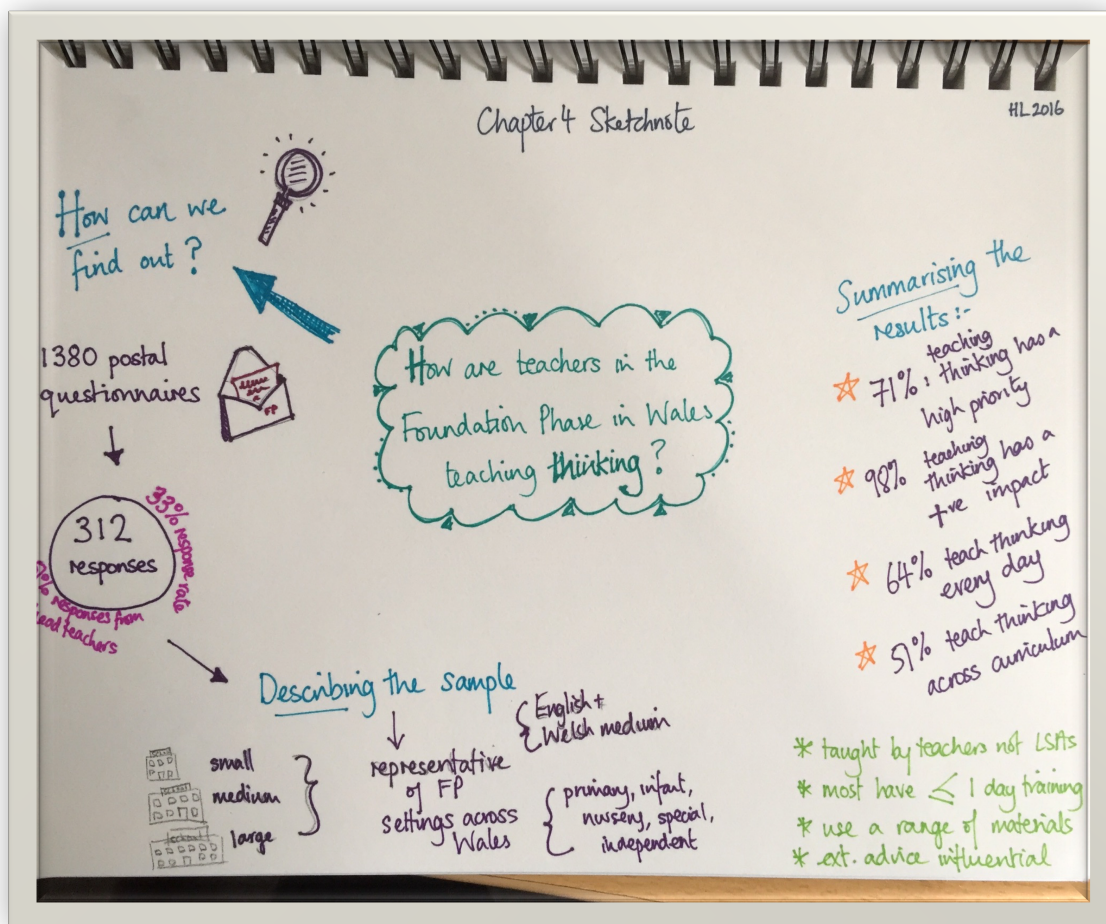 Chapter 4 Sketchnote
HL 2016
How can we
find out?
1380 postal
questionnaires
FP
312
responses
33% response rate
% responses from
teachers
How are teachers in the
Foundation Phase in Wales
teaching thinking?
Describing the sample
small
medium
large
representative
of FP
settings across
Wales
English +
Welsh medium
primary, infant,
nursery, special,
independent
Summarising the
results:-
71%: teaching
thinking has a
high priority
98% teaching
thinking has a
+ve impact
64% teach thinking
every day
51% teach thinking
across curriculum
* taught by teachers not LSAs
* most have ≤ 1 day training
* use a range of materials
* ext. advice influential